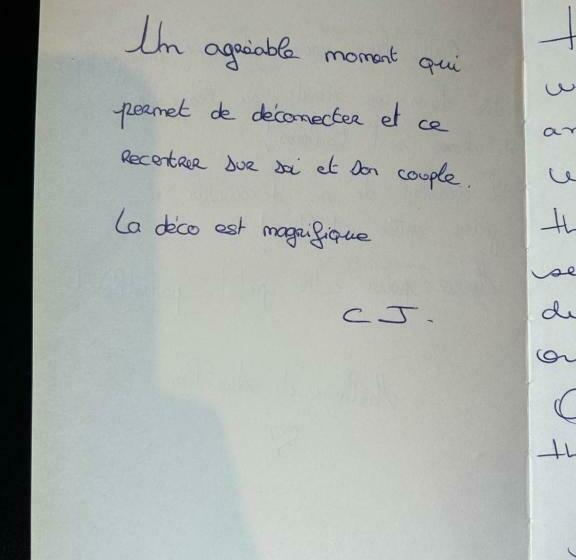 Un agréable moment qui
permet de déconnecter et ce
recentrer sur soi et son couple.
La déco est magnifique
C J.